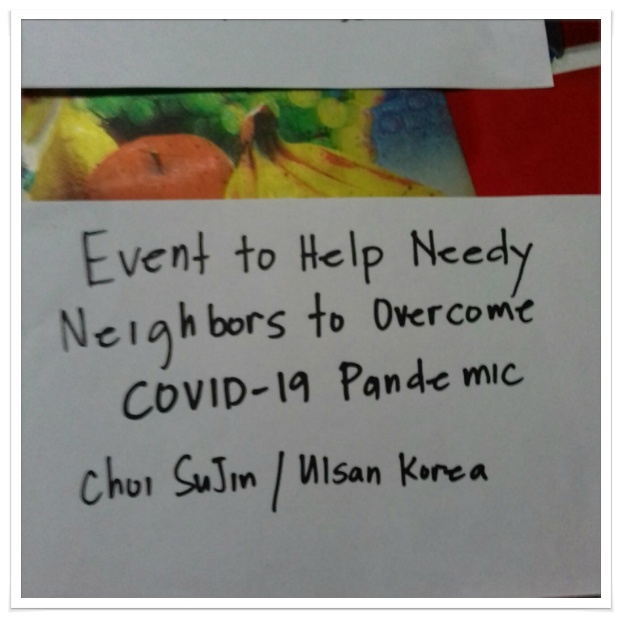 Event to Help Needy
Neighbors to Overcome
COVID-19 Pandemic
Choi SuJin / Ulsan Korea